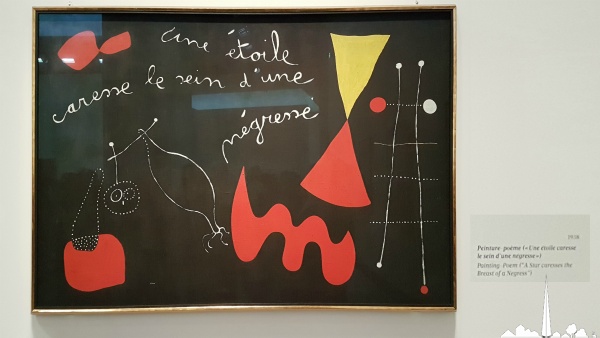 une étoile
caresse le sein d'une
négresse
1938
Peinture-poème («Une étoile caresse
le sein d'une négresse»)
Painting-Poem ("A Star caresses the
Breast of a Negress")